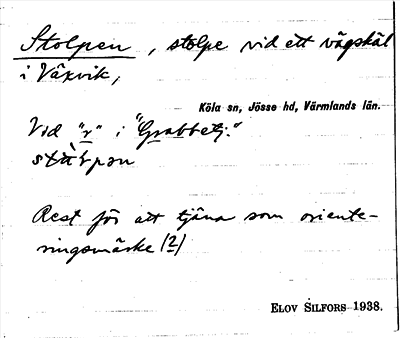 Stolpen, stolpe vid ett vägskäl
i Växvik,
Köla sn, Jösse hd, Värmlands län.
Vid "r" i "Grabbetj:"
Rest för att tjäna som oriente-
ringsmärke (?)
ELOV SILFORS 1938.